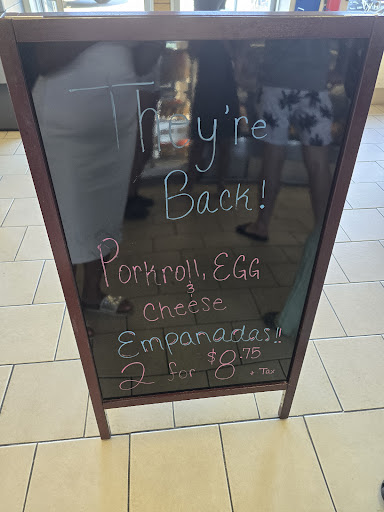 They're
Back!
Porkroll, EGG
&
cheese
Empanadas!!
2 for $8.75
+ Tax